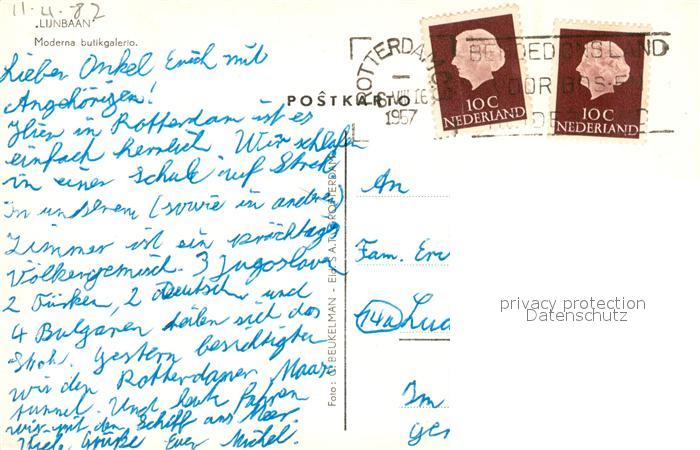 11-4-82
"LIJNBAAN"
Moderna butikgalerio.
Lieber Onkel Erich mit
Angehörigen!
Hier in Rotterdam ist es
einfach herrlich. Wir schlafen
in einer Schule auf Stroh.
In unserem (sowie in andere)
Zimmer ist ein prächtiges
Völkergemisch. 3 Jugoslaven
2 Türken, 2 Deutsche und
4 Bulgaren teilen sich das
Stroh. Gestern besichtigten
wir den Rotterdamer Maas-
tunnel. Und heute fahren
wir mit dem Schiff ans Meer.
Viele Grüße Euer Michel.
POŜTKARTO
Foto: G. BEUKELMAN - Eld. S.A.T. ROTTERDAM
ROTTERDAM
1957
10 C
NEDERLAND
10 C
NEDERLAND
An
Fam.
14a
Im
privacy protection
Datenschutz